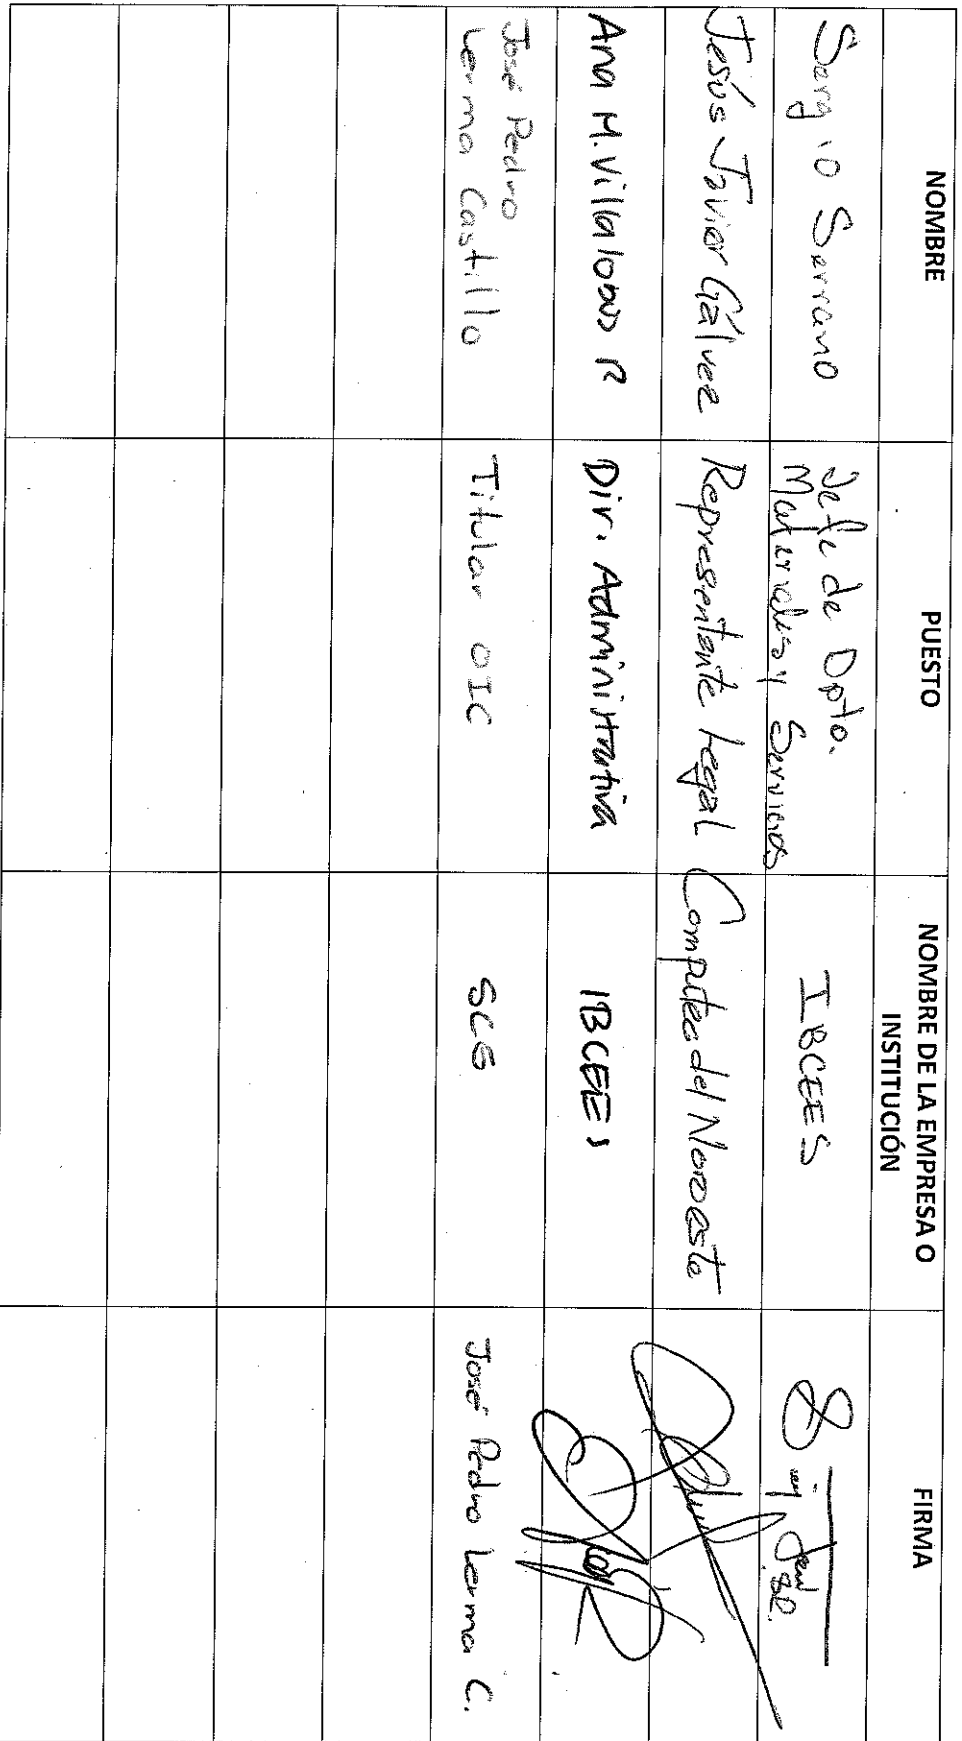 NOMBRE
PUESTO
NOMBRE DE LA EMPRESA O
INSTITUCIÓN
FIRMA
Sergio Serrano
Jefe de Dpto.
Materiales y Servicios
IBCEES
Jesús Javier Gálvez
Representante Legal
Computec del Noroeste
Ana M. Villalobos R
Dir. Administrativa
IBCEES
José Pedro
Lerma Castillo
Titular OIC
SCG
José Pedro Lerma C.